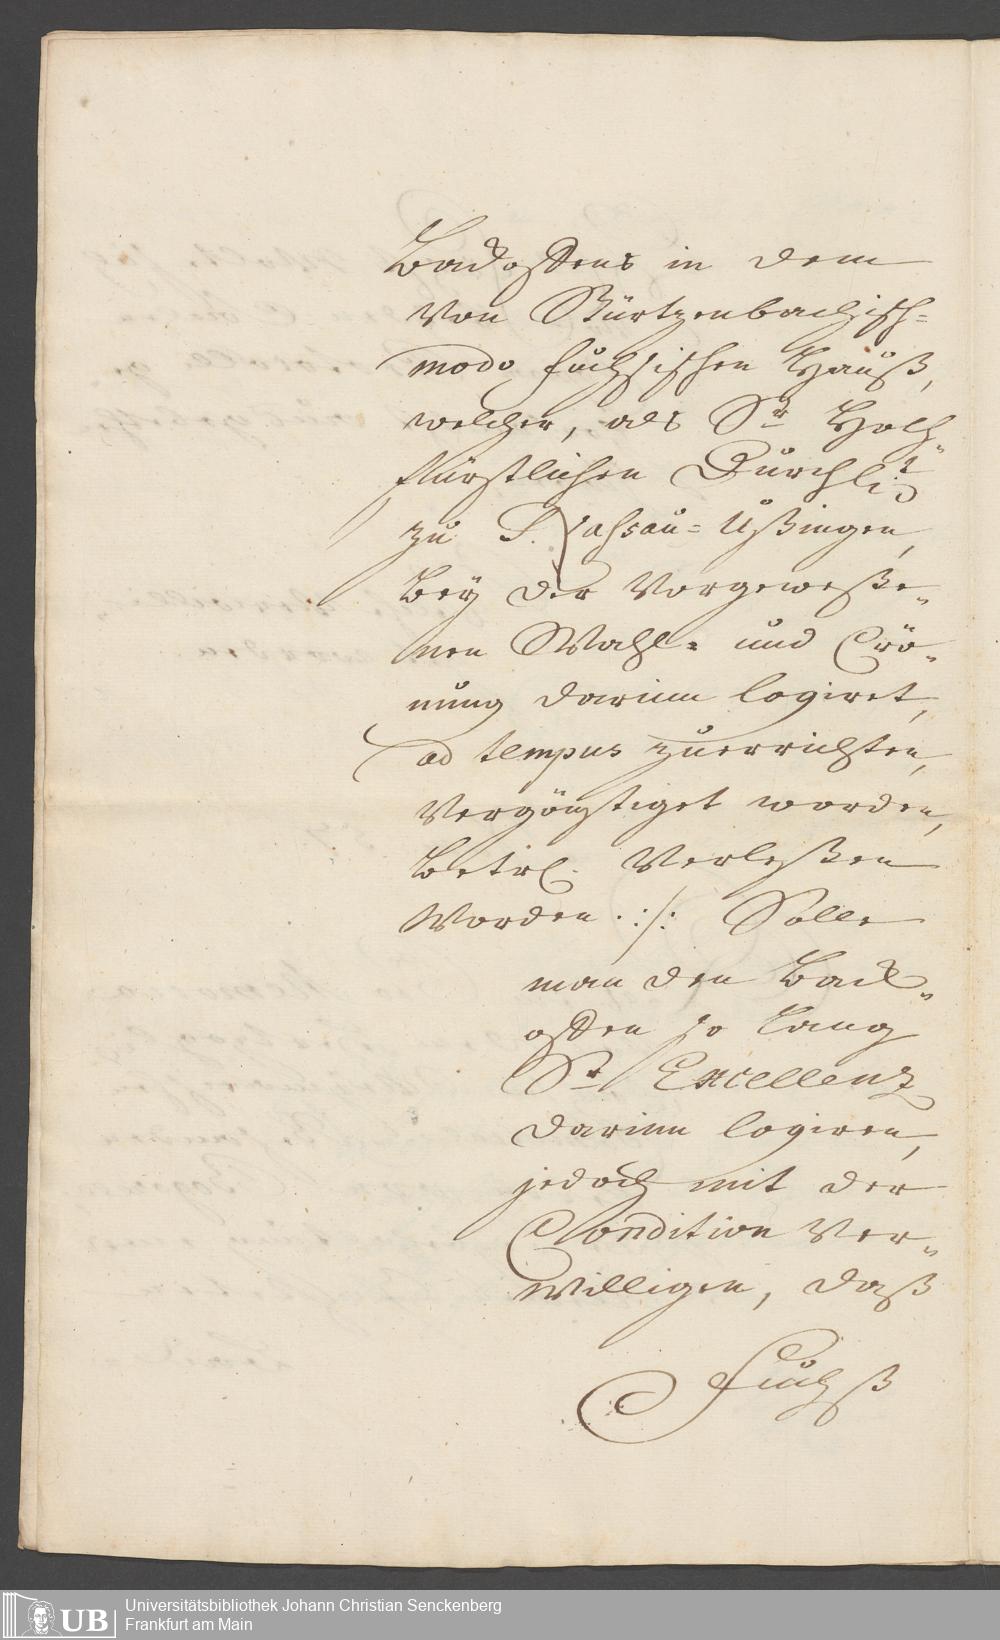 Backoffens in dem
von Bürtzenbachisch-
modo Fuchsischen Hauß,
welcher, als Sr. Hoch-
fürstlichen Durchlt.
zu S. Nassau-Ußingen,
bey der Vorgeweße-
nen Wahl- und Crö-
nung darinn logiret,
ad tempus zuerrichten,
vergönstiget worden,
betrl. verleßen
worden. :/: Solle
man den Back-
offen so lang
Sr. Excellenz
darinn logiren,
jedoch mit der
Condition ver-
willigen, daß
Fuchß
UB
Universitätsbibliothek Johann Christian Senckenberg
Frankfurt am Main